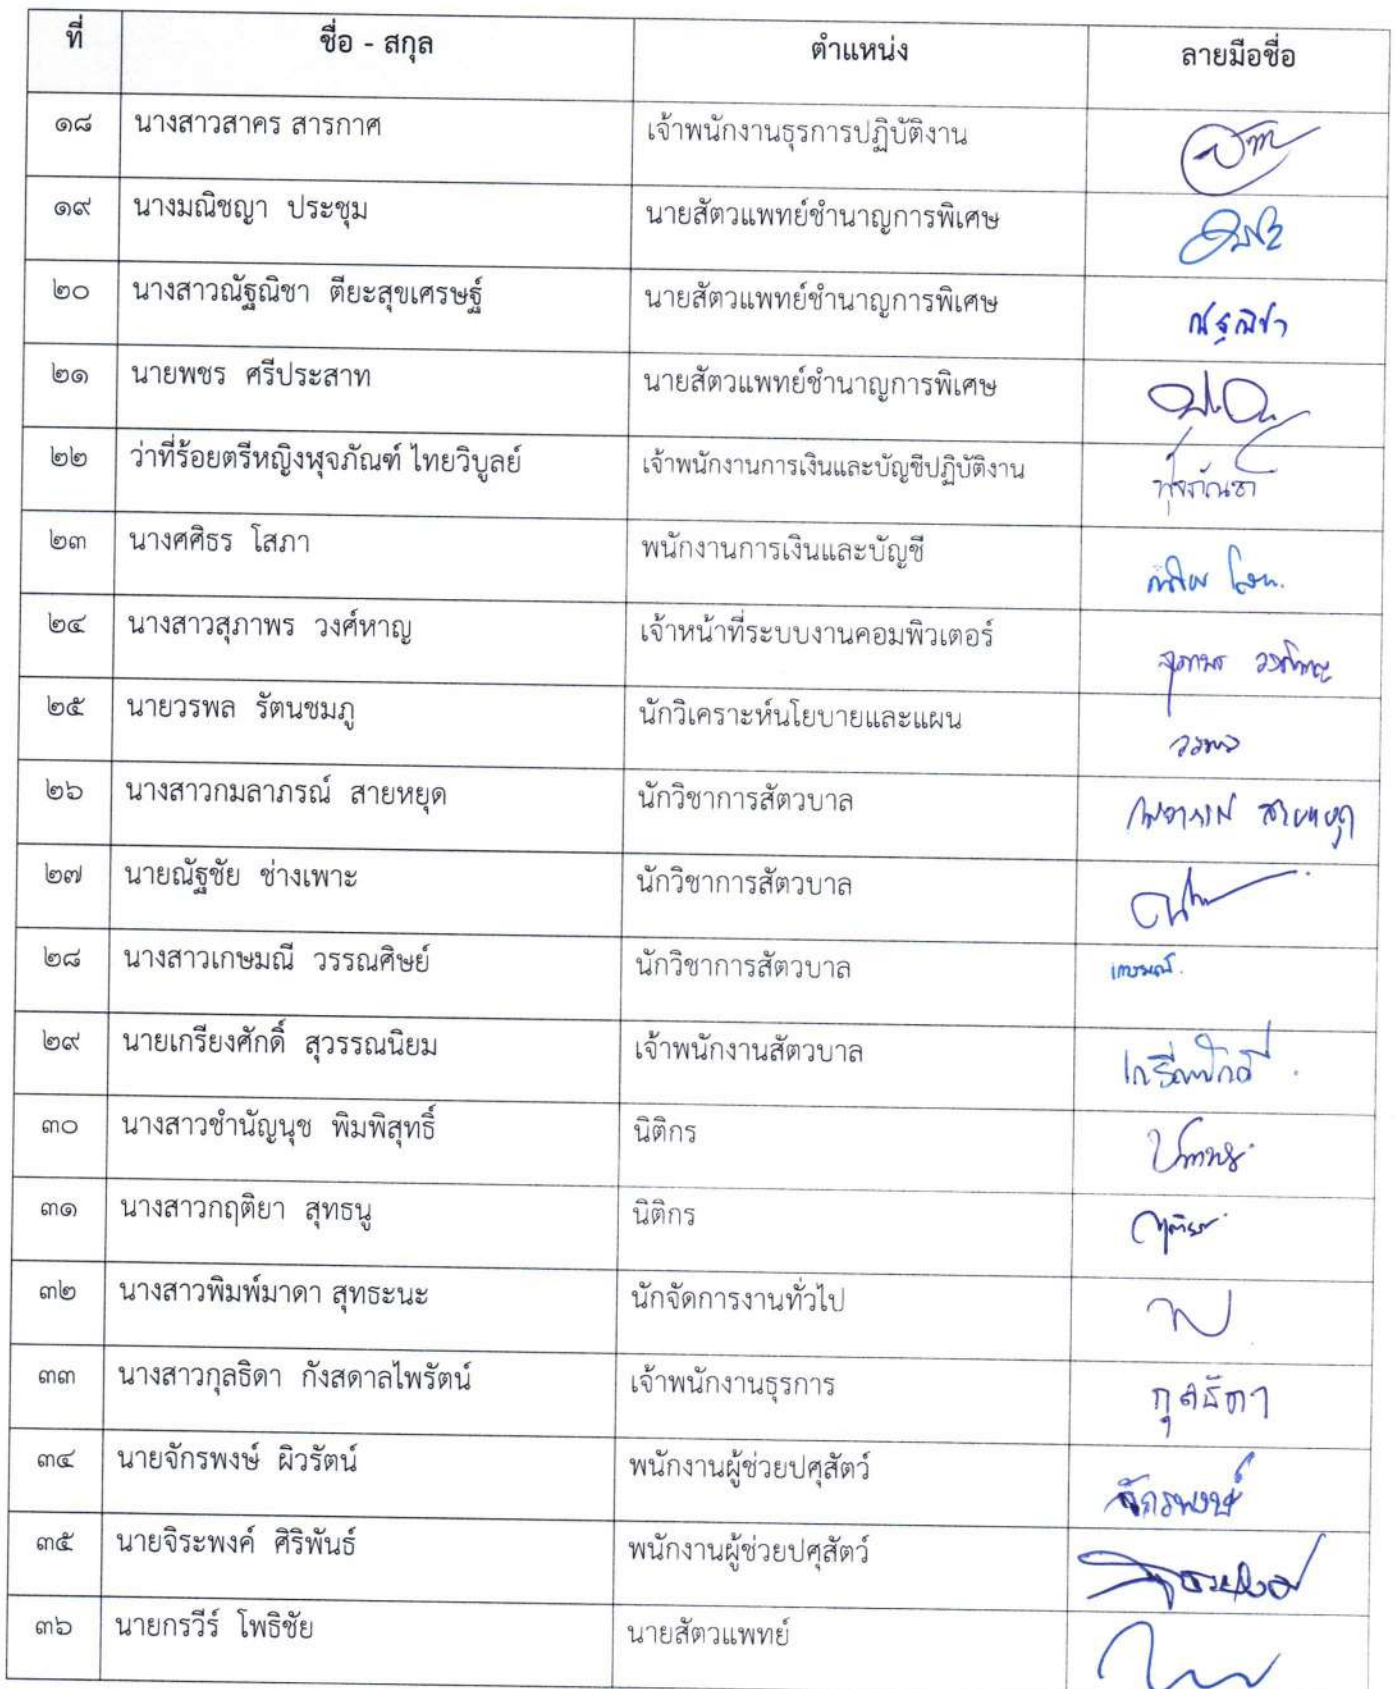 ที่ ชื่อ - สกุล ตำแหน่ง ลายมือชื่อ
๑๘ นางสาวสาคร สารกาศ เจ้าพนักงานธุรการปฏิบัติงาน
๑๙ นางมณิชญา ประชุม นายสัตวแพทย์ชำนาญการพิเศษ
๒๐ นางสาวณัฐณิชา ตียะสุขเศรษฐ์ นายสัตวแพทย์ชำนาญการพิเศษ ณัฐณิชา
๒๑ นายพชร ศรีประสาท นายสัตวแพทย์ชำนาญการพิเศษ
๒๒ ว่าที่ร้อยตรีหญิงพุจภัณฑ์ ไทยวิบูลย์ เจ้าพนักงานการเงินและบัญชีปฏิบัติงาน
๒๓ นางศศิธร โสภา พนักงานการเงินและบัญชี
๒๔ นางสาวสุภาพร วงศ์หาญ เจ้าหน้าที่ระบบงานคอมพิวเตอร์ สุภาพร วงศ์หาญ
๒๕ นายวรพล รัตนชมภู นักวิเคราะห์นโยบายและแผน วรพล
๒๖ นางสาวกมลาภรณ์ สายหยุด นักวิชาการสัตวบาล กมลาภรณ์ สายหยุด
๒๗ นายณัฐชัย ช่างเพาะ นักวิชาการสัตวบาล
๒๘ นางสาวเกษมณี วรรณศิษย์ นักวิชาการสัตวบาล เกษมณี
๒๙ นายเกรียงศักดิ์ สุวรรณนิยม เจ้าพนักงานสัตวบาล เกรียงศักดิ์
๓๐ นางสาวชำนัญนุช พิมพิสุทธิ์ นิติกร
๓๑ นางสาวกฤติยา สุทธนู นิติกร กฤติยา
๓๒ นางสาวพิมพ์มาดา สุทธะนะ นักจัดการงานทั่วไป
๓๓ นางสาวกุลธิดา กังสดาลไพรัตน์ เจ้าพนักงานธุรการ กุลธิดา
๓๔ นายจักรพงษ์ ผิวรัตน์ พนักงานผู้ช่วยปศุสัตว์ จักรพงษ์
๓๕ นายจิระพงค์ ศิริพันธ์ พนักงานผู้ช่วยปศุสัตว์
๓๖ นายกรวีร์ โพธิชัย นายสัตวแพทย์